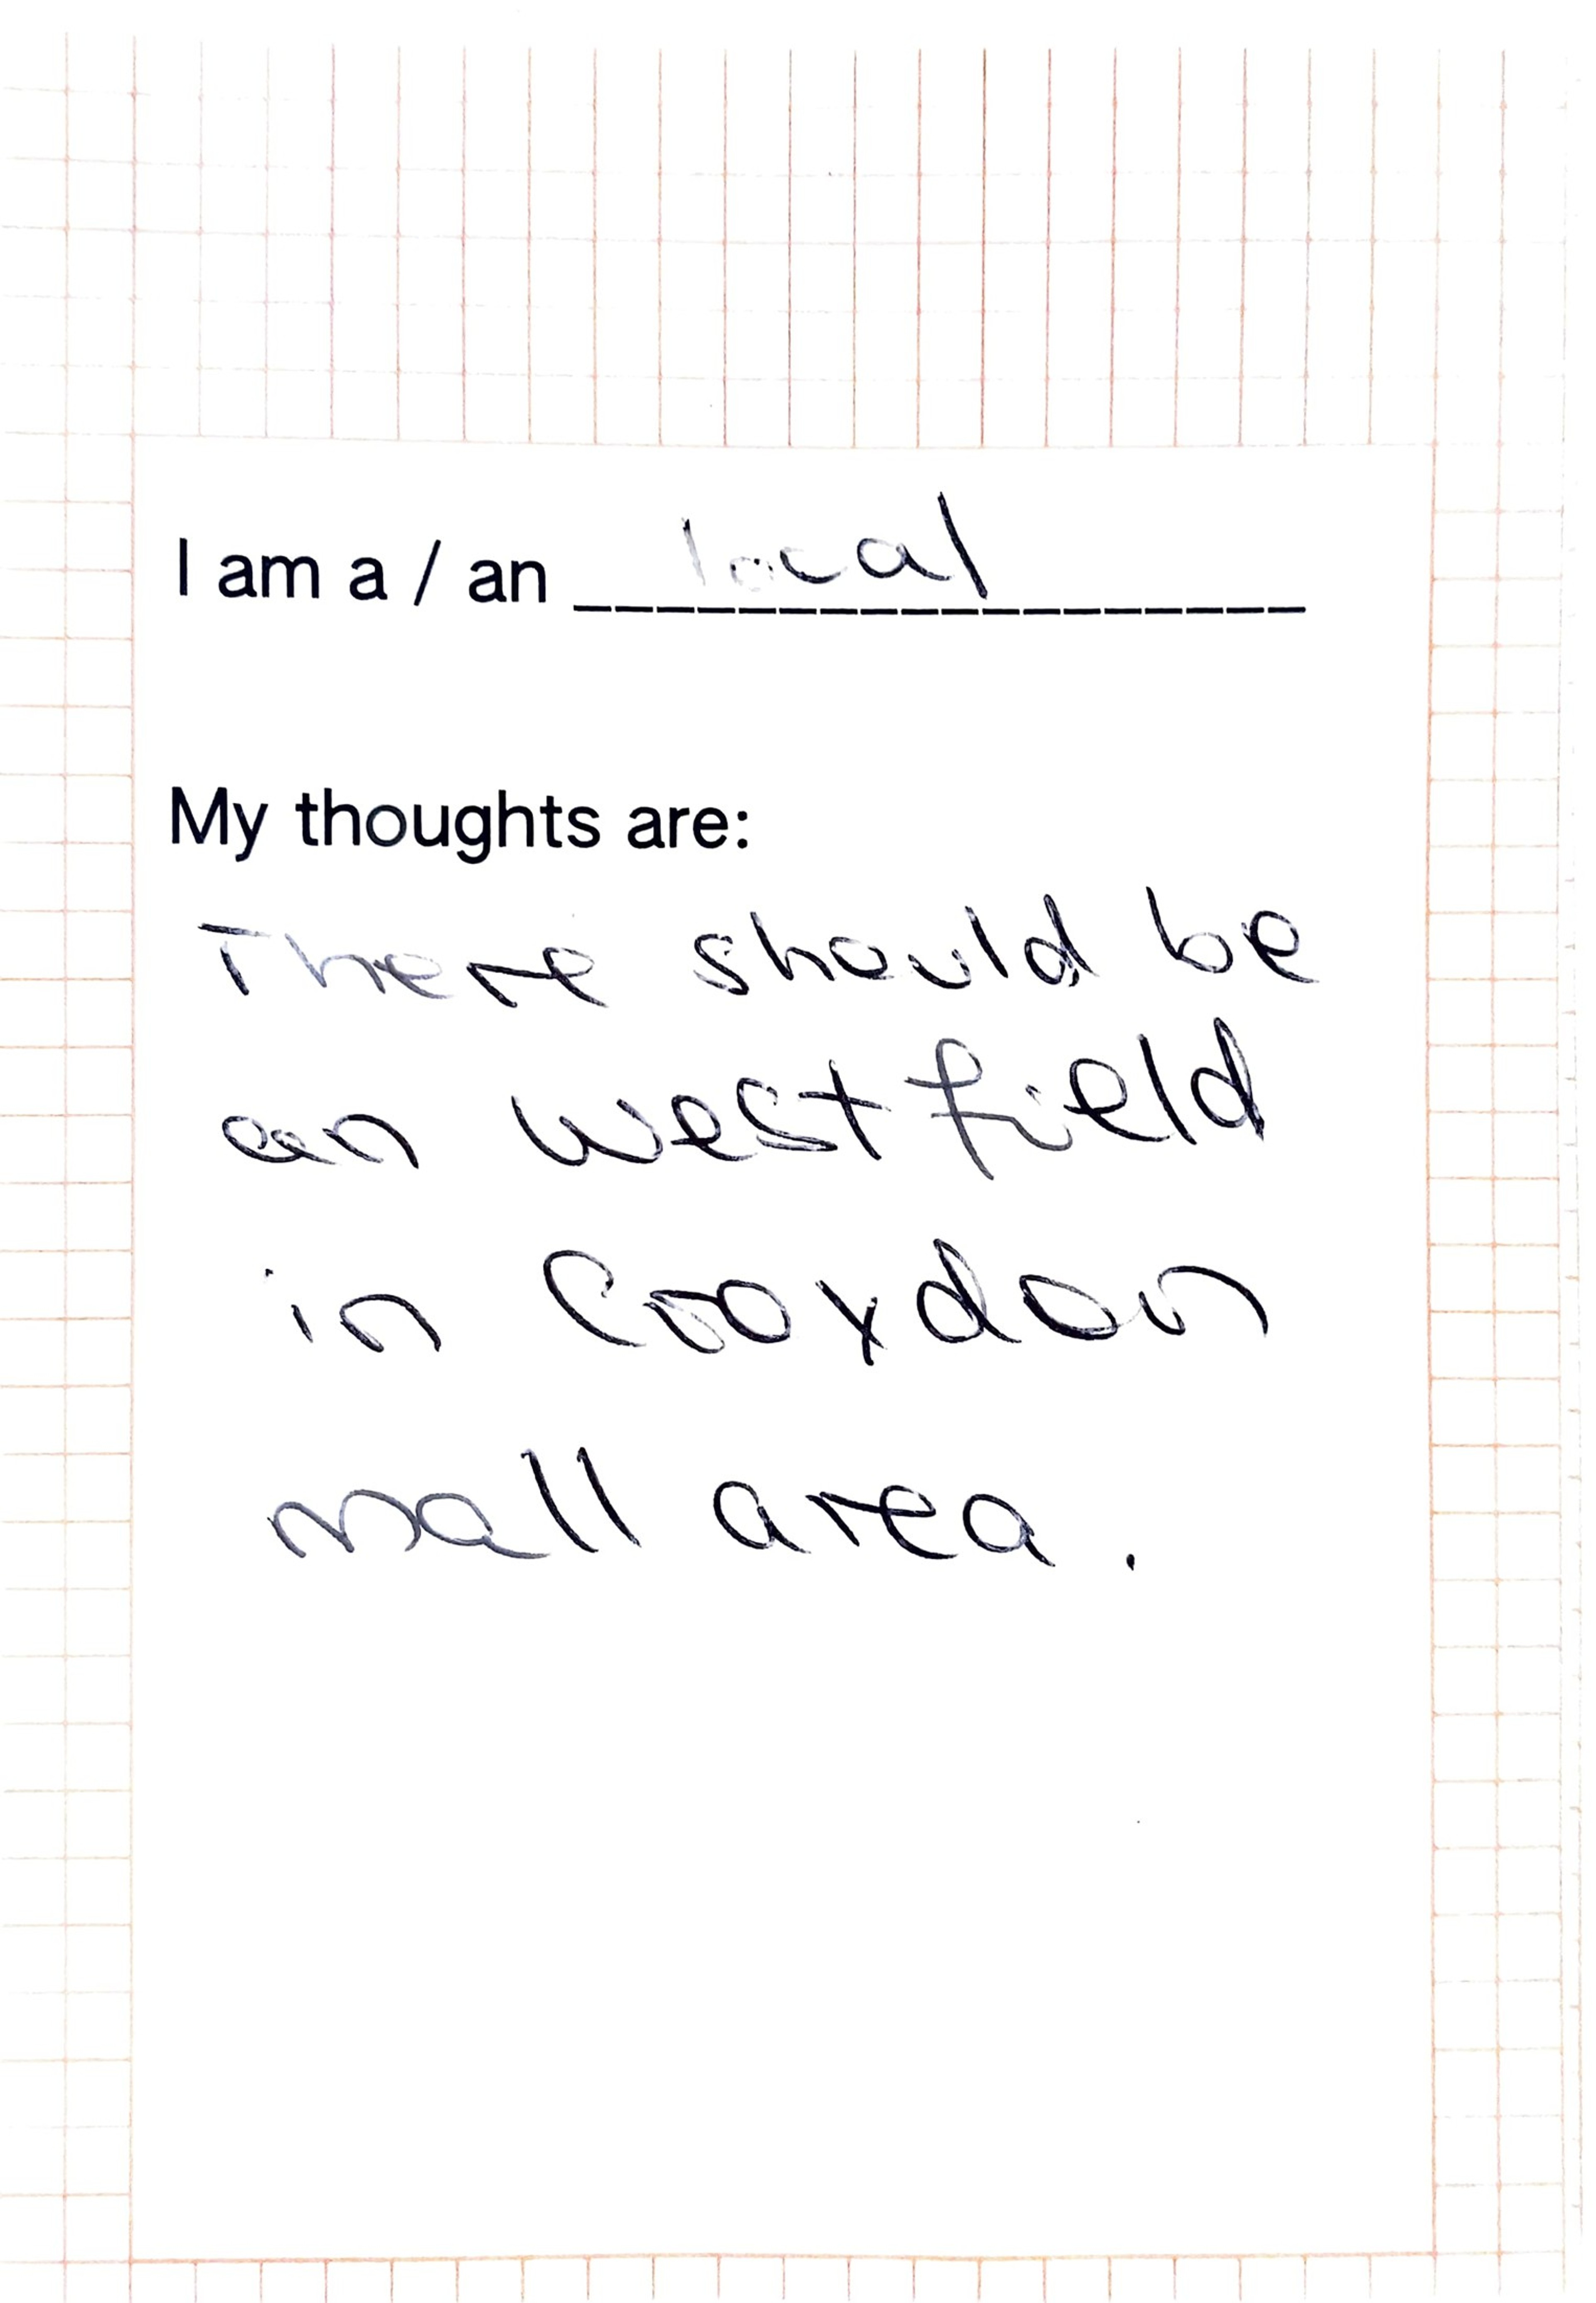 I am a / an local
My thoughts are:
There should be
an westfield
in Croydon
mall area.